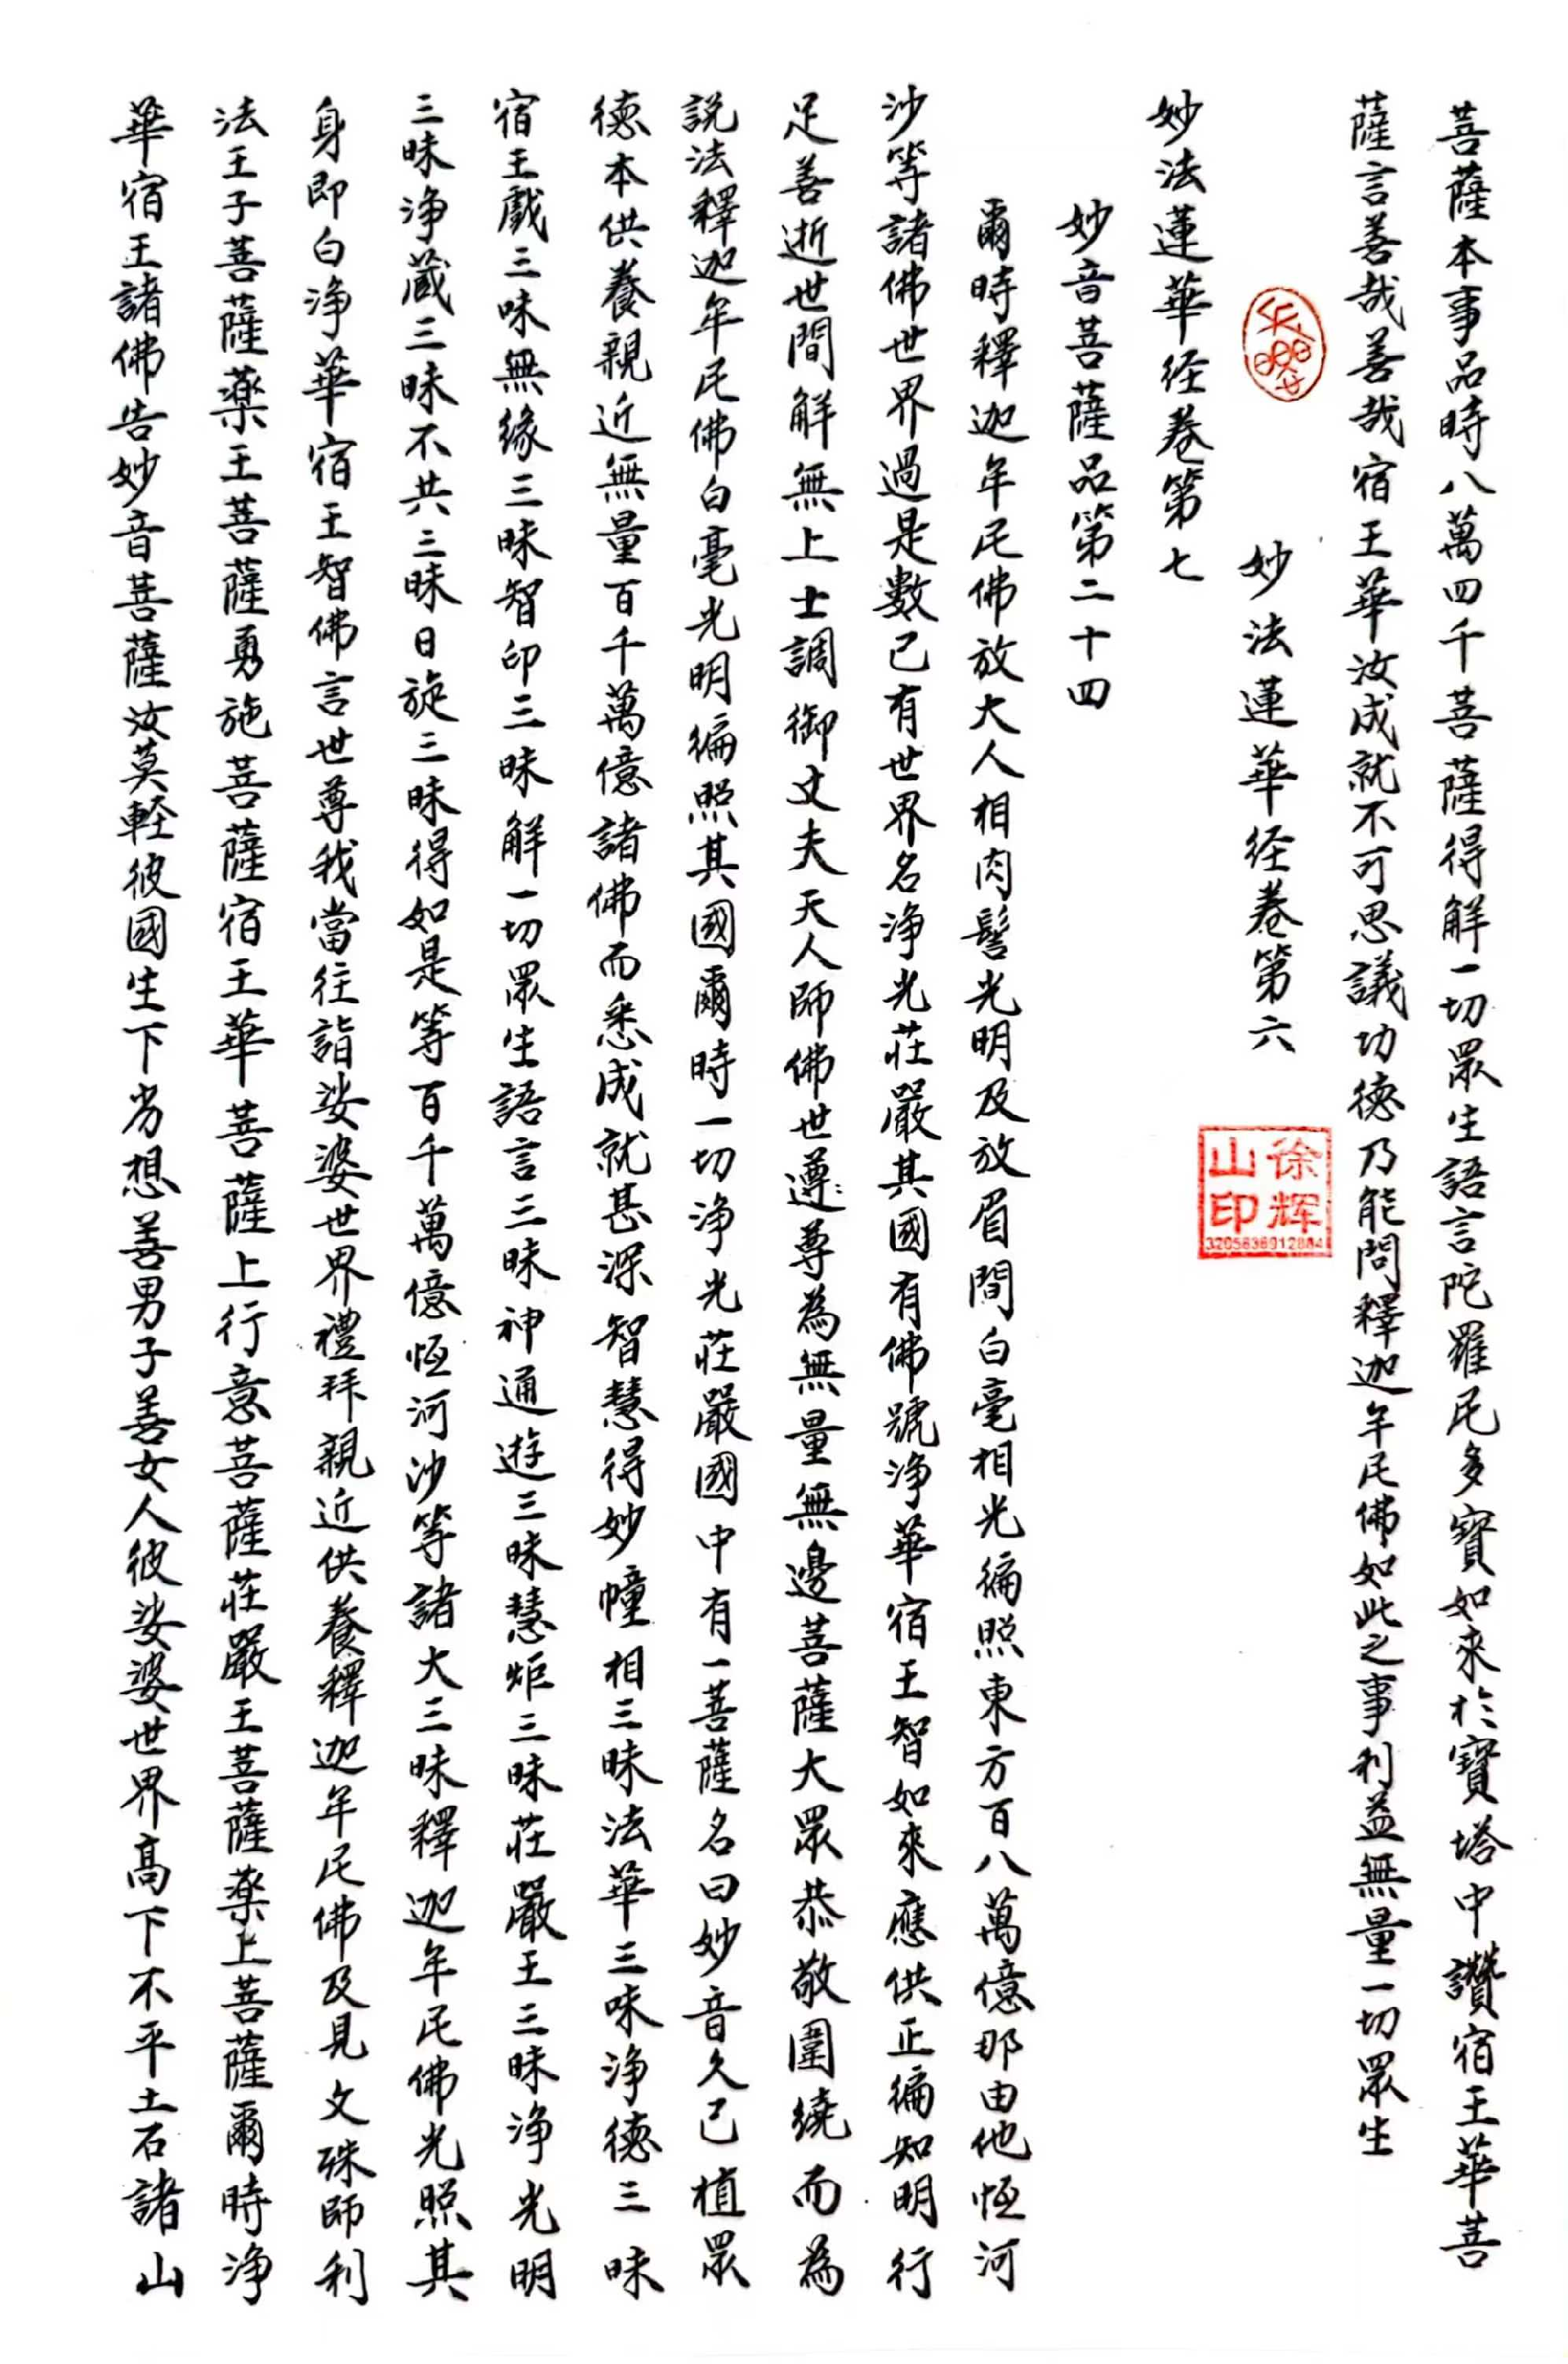 菩薩本事品時八萬四千菩薩得解一切眾生語言陀羅尼多寶如來於寶塔中讚宿王華菩
薩言善哉善哉宿王華汝成就不可思議功德乃能問釋迦牟尼佛如此之事利益無量一切眾生
妙法蓮華经卷第六
徐辉
山印
3205636912884
妙法蓮華经卷第七
妙音菩薩品第二十四
爾時釋迦牟尼佛放大人相肉髻光明及放眉間白毫相光徧照東方百八萬億那由他恆河
沙等諸佛世界過是數已有世界名净光莊嚴其國有佛號净華宿王智如來應供正徧知明行
足善逝世間解無上士調御丈夫天人師佛世遵尊為無量無邊菩薩大眾恭敬圍繞而為
説法釋迦牟尼佛白毫光明徧照其國爾時一切净光莊嚴國中有一菩薩名曰妙音久已植眾
德本供養親近無量百千萬億諸佛而悉成就甚深智慧得妙幢相三昧法華三昧净德三昧
宿王戲三昧無緣三昧智印三昧解一切眾生語言三昧神通遊三昧慧炬三昧莊嚴王三昧净光明
三昧净蔵三昧不共三昧日旋三昧得如是等百千萬億恆河沙等諸大三昧釋迦牟尼佛光照其
身即白净華宿王智佛言世尊我當往詣娑婆世界禮拜親近供養釋迦牟尼佛及見文殊師利
法王子菩薩藥王菩薩勇施菩薩宿王華菩薩上行意菩薩莊嚴王菩薩藥上菩薩爾時净
華宿王諸佛告妙音菩薩汝莫輕彼國生下劣想善男子善女人彼娑婆世界高下不平土石諸山